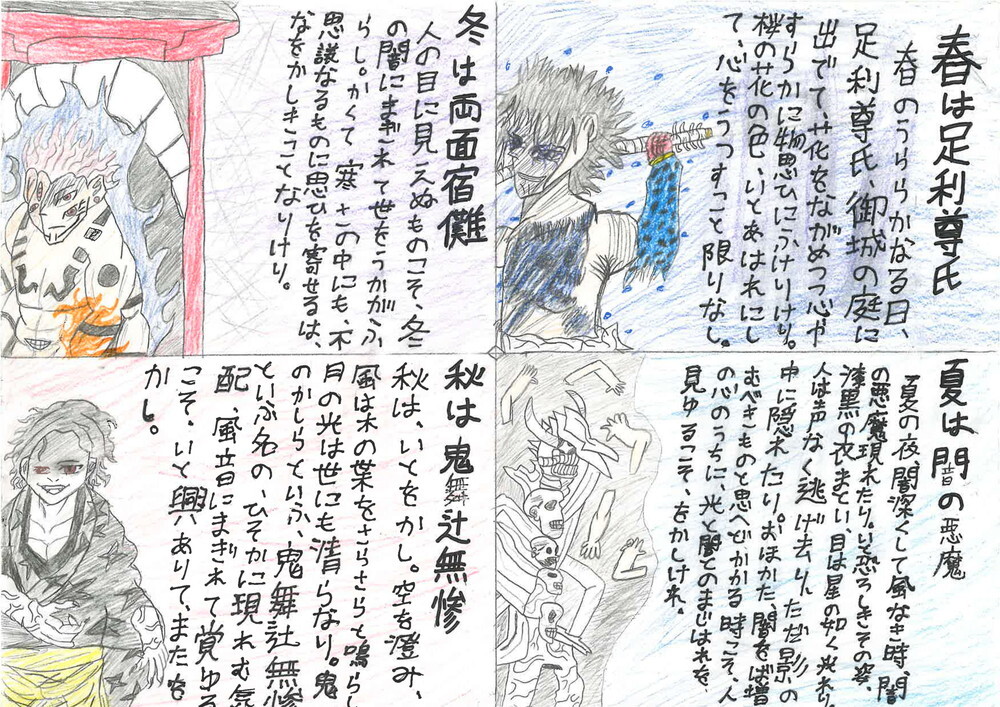 春は足利尊氏
春のうららかなる日、
足利尊氏、御城の庭に
出でて、花をながめつつ心や
すらかに物思ひにふけりけり。
桜の花の色、いとあはれにし
て、心をうつすこと限りなし。
夏は闇の悪魔
夏の夜、闇深くして風なき時、闇
の悪魔現れたり。いと恐ろしきその姿、
漆黒の衣まとい、目は星の如く光れり。
人は声なく逃げ去りんただ影の
中に隠れたり。おほかた、闇をば増
むべきものと思へどかかる時こそ、人
の心のうちに、光と闇とのまじはれを、
見ゆるこそ、をかしけれ。
秋は鬼舞辻無惨
秋は、いとをかし。空を澄み、
風は木の葉をさらさらと鳴らし
月の光は世にも清らなり。鬼
のかしらといふ、鬼舞辻無惨
といふ名の、ひそかに現れむ気
配、風立日にまぎれて覚ゆる
こそ、いと興ありて、またを
かし。
冬は両面宿儺
人の目に見こえぬものこそ、冬
の闇にまぎれて世をうかがふ
らし。かくて寒さの中にも、不
思議なるものに思ひを寄せるは、
なをかしきことなりけり。